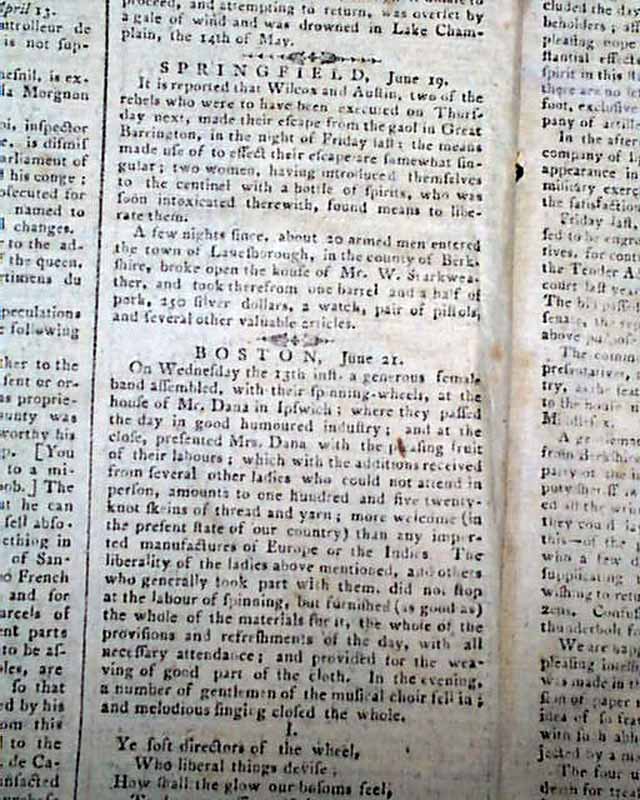 April 13.
ntrolleur de
is not sup-
nesnil, is ex-
la Morgnon
oi, inspector
e, is dismis
arliament of
his conge ;
osecuted for
named to
changes.
to the ad-
f the queen.
rtimens du
peculations
e following
her to the
sent or or-
as proprie-
aunty was
worthy his
p. [You
to a mi-
ob.] The
at he can
sell abso-
ething in
of San-
o French
and for
arcels of
ent parts
to be as-
les, are
so that
ed by his
om this
to the
de Ca-
nsacted
proceed, and attempting to return, was overset by
a gale of wind and was drowned in Lake Cham-
plain, the 14th of May.
SPRINGFIELD, June 19.
It is reported that Wilcox and Austin, two of the
rebels who were to have been executed on Thurs-
day next, made their escape from the gaol in Great
Barrington, in the night of Friday last ; the means
made use of to effect their escape are somewhat sin-
gular ; two women, having introduced themselves
to the centinel with a bottle of spirits, who was
soon intoxicated therewith, found means to libe-
rate them.
A few nights since, about 20 armed men entered
the town of Lanesborough, in the county of Berk-
shire, broke open the house of Mr. W. Starkwea-
ther, and took therefrom one barrel and a half of
pork, 250 silver dollars, a watch, pair of pistols,
and several other valuable articles.
BOSTON, June 21.
On Wednesday the 13th inst. a generous female
band assembled, with their spinning-wheels, at the
house of Mr. Dana in Ipswich ; where they passed
the day in good humoured industry ; and at the
close, presented Mrs. Dana with the pleasing fruit
of their labours ; which with the additions received
from several other ladies who could not attend in
person, amounts to one hundred and five twenty-
knot skeins of thread and yarn ; more welcome (in
the present state of our country) than any impor-
ted manufactures of Europe or the Indies. The
liberality of the ladies above mentioned, and others
who generally took part with them, did not stop
at the labour of spinning, but furnished (as good as)
the whole of the materials for it, the whole of the
provisions and refreshments of the day, with all
necessary attendance ; and provided for the wea-
ving of good part of the cloth. In the evening,
a number of gentlemen of the musical choir fell in ;
and melodious singing closed the whole.
I.
Ye soft directors of the wheel,
Who liberal things devise ;
How shall the glow our bosoms feel,
cluded the da
beholders ; a
pleasing nope
stantial effect
spirit in this
there are no
foot, exclusive
pany of artill
In the after
company of
appearance in
military exer
the satisfaction
Friday last,
sed to be engro
sives, for cont
the Tender A
court last year
The bill passed
senate, the
above
The comm
presentatives,
try, as the
to the house
Middlesex.
A gentleman
from Berkshire
party of the
puty sheriff
ed all the
they could
this—of the
who a few d
supplicating
wishing to retu
zens. Confus
thunderbolt f
We are happ
pleasing intell
was made in t
sion of paper
idea of so fear
with such abh
jected by a m
The four
death for trea